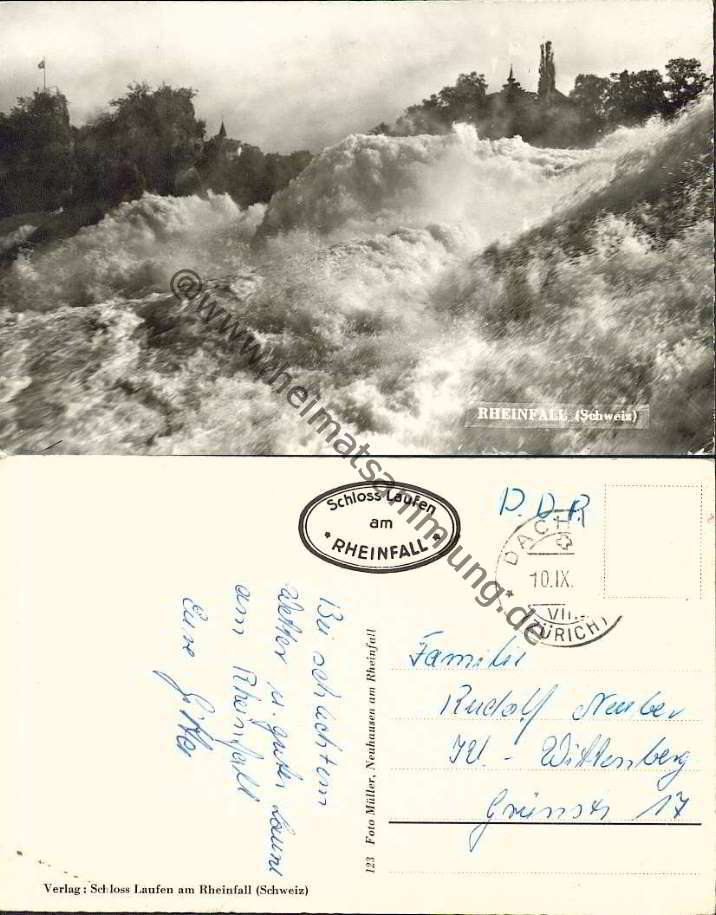 RHEINFALL (Schweiz)
@www.heimatsammlung.de
Schloss Laufen
am
* RHEINFALL *
D.D.R.
DACH
10.IX.
VII.
(ZÜRICH)
Bei schlechtem
Wetter u. guter Laune
am Rheinfall
Eure
Familie
Rudolf Neuber
Wittenberg
Grünstr 17
123 Foto Müller, Neuhausen am Rheinfall
Verlag: Schloss Laufen am Rheinfall (Schweiz)